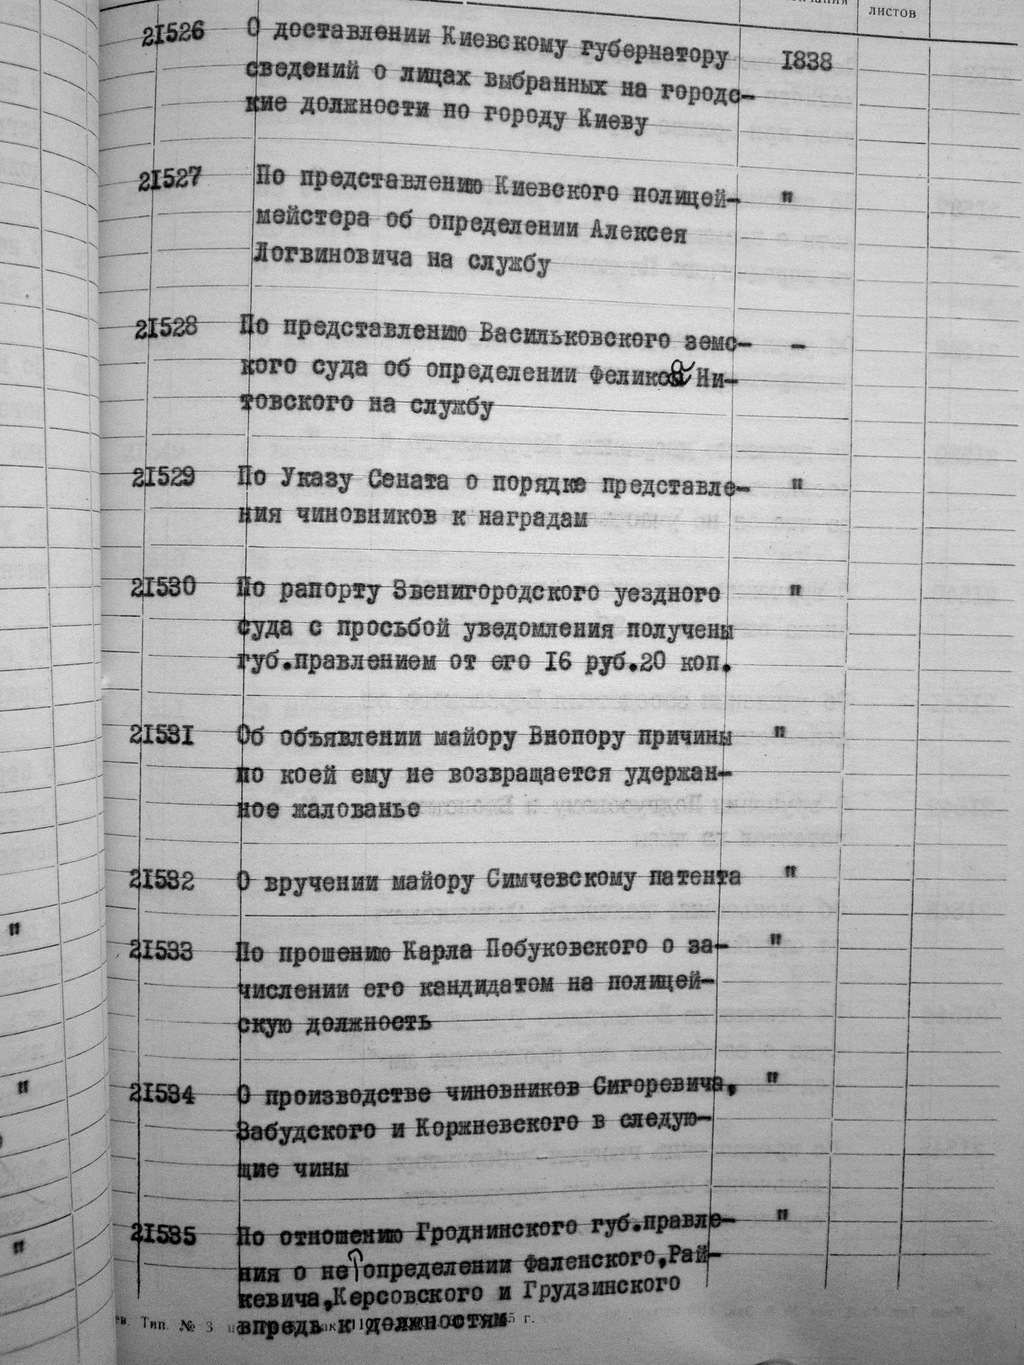 листов
21526 О доставлении Киевскому губернатору 1838
сведений о лицах выбранных на городс-
кие должности по городу Киеву
21527 По представлению Киевского полицей- "
мейстера об определении Алексея
Логвиновича на службу
21528 По представлению Васильковского земс- -
кого суда об определении Феликса Ни-
товского на службу
21529 По Указу Сената о порядке представле- "
ния чиновников к наградам
21530 По рапорту Звенигородского уездного "
суда с просьбой уведомления получены
губ.правлением от его 16 руб.20 коп.
21531 Об объявлении майору Внопору причины "
по коей ему не возвращается удержан-
ное жалованье
21532 О вручении майору Симчевскому патента "
21533 По прошению Карла Побуковского о за- "
числении его кандидатом на полицей-
скую должность
21534 О производстве чиновников Сигоревича, "
Забудского и Коржневского в следую-
щие чины
21535 По отношению Гроднинского губ.правле- "
ния о не определении Фаленского,Рай-
кевича,Керсовского и Грудзинского
впредь к должностям
Тип. № 3